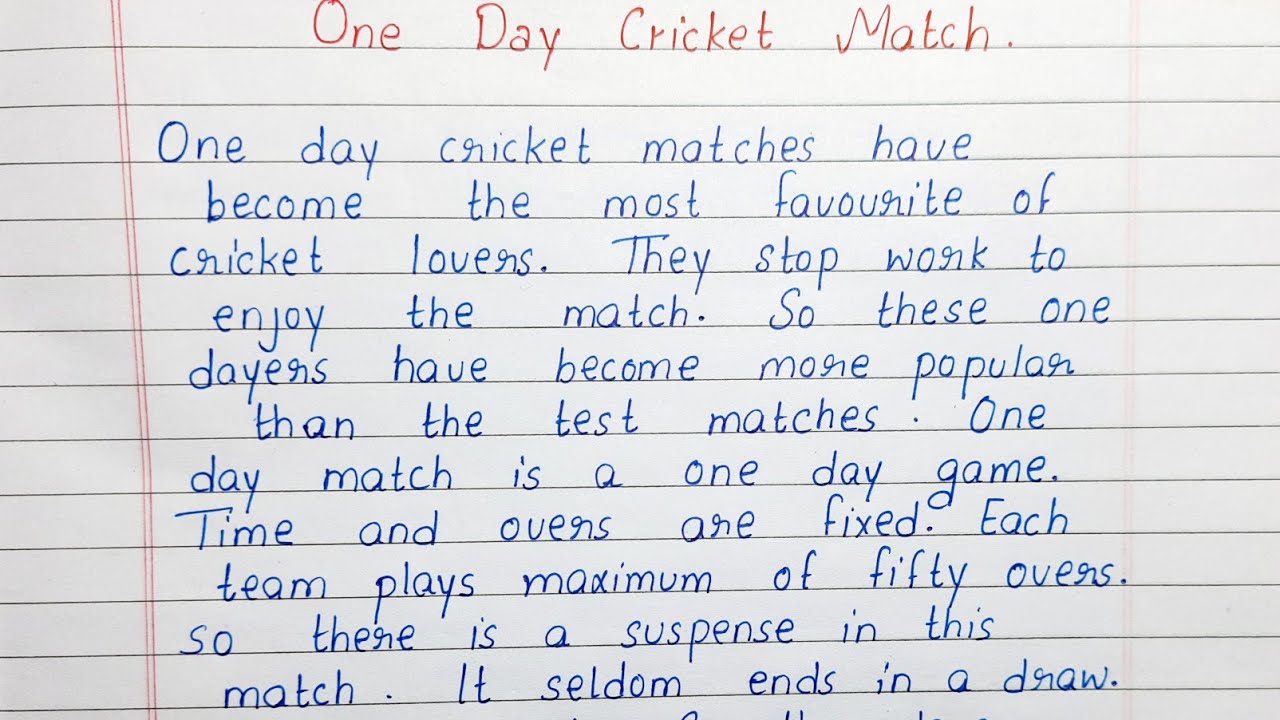 One Day Cricket Match.
One day cricket matches have
become the most favourite of
cricket lovers. They stop work to
enjoy the match. So these one
dayers have become more popular
than the test matches. One
day match is a one day game.
Time and overs are fixed. Each
team plays maximum of fifty overs.
so there is a suspense in this
match. It seldom ends in a draw.